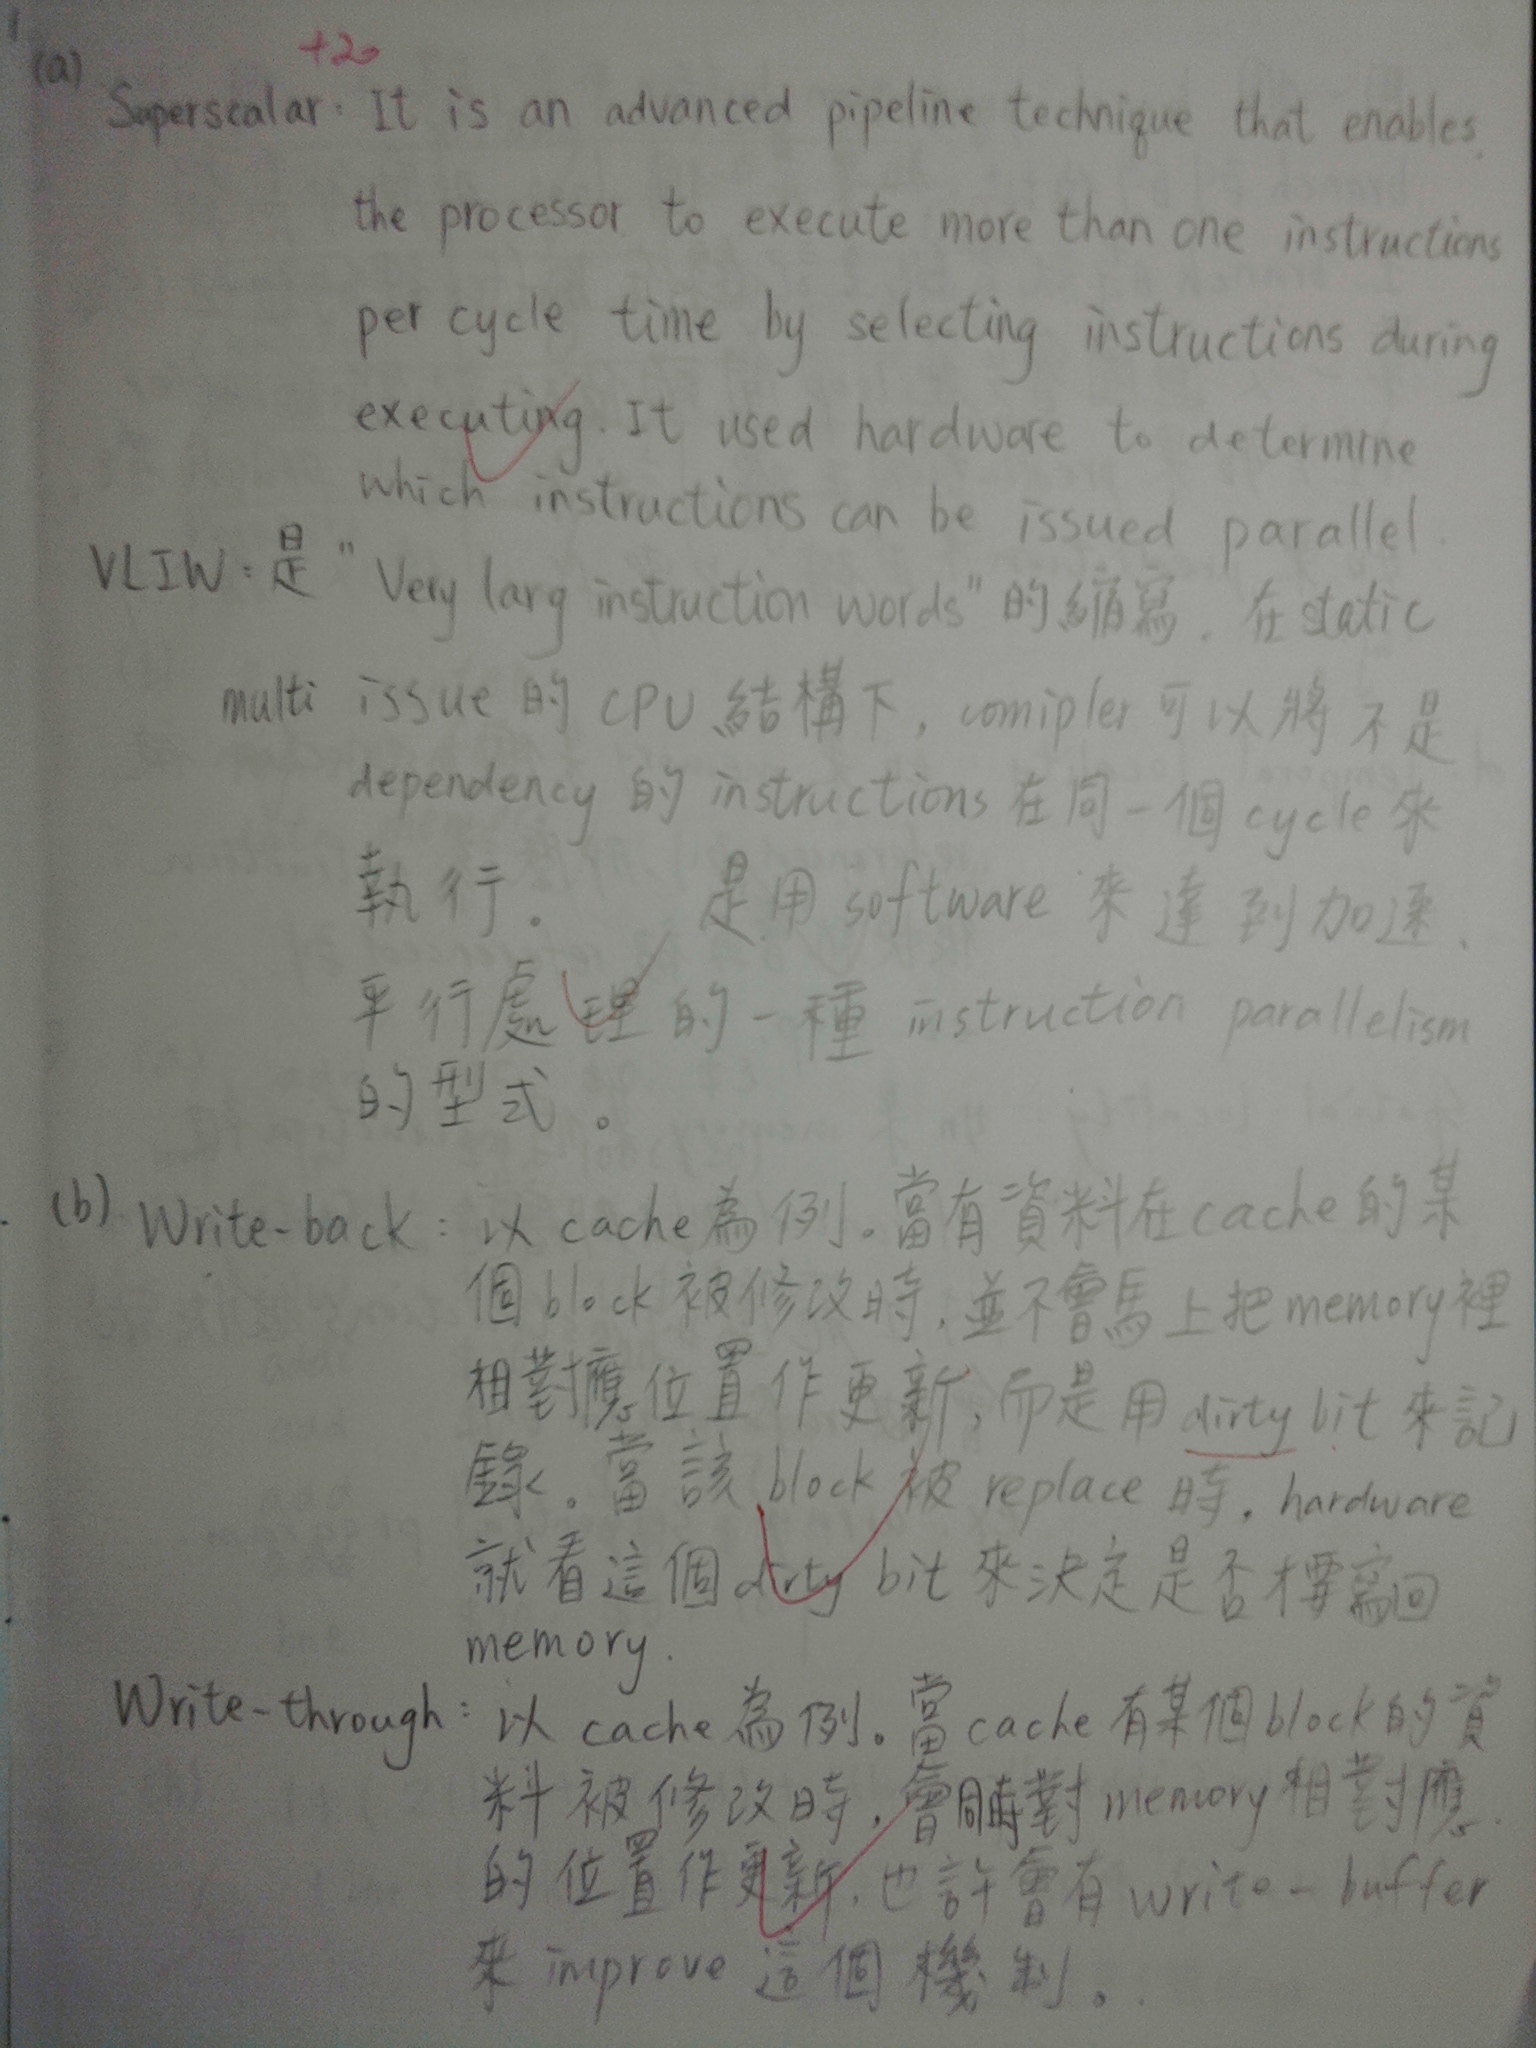 1
+20
(a)
Superscalar: It is an advanced pipeline technique that enables
the processor to execute more than one instructions
per cycle time by selecting instructions during
executing. It used hardware to determine
which instructions can be issued parallel.
VLIW:是"Very larg instruction words"的縮寫. 在static
multi issue的CPU結構下, comipler可以將不是
dependency的instructions在同一個cycle來
執行。 是用software來達到加速、
平行處理的一種 instruction parallelism
的型式。
(b) Write-back: 以cache為例。當有資料在cache的某
個block被修改時, 並不會馬上把memory裡
相對應位置作更新, 而是用dirty bit來記
錄。當該block被replace時, hardware
就看這個dirty bit來決定是否要寫回
memory.
Write-through: 以cache為例。當cache有某個block的資
料被修改時, 會同時對memory相對應
的位置作更新, 也許會有write-buffer
來improve這個機制。